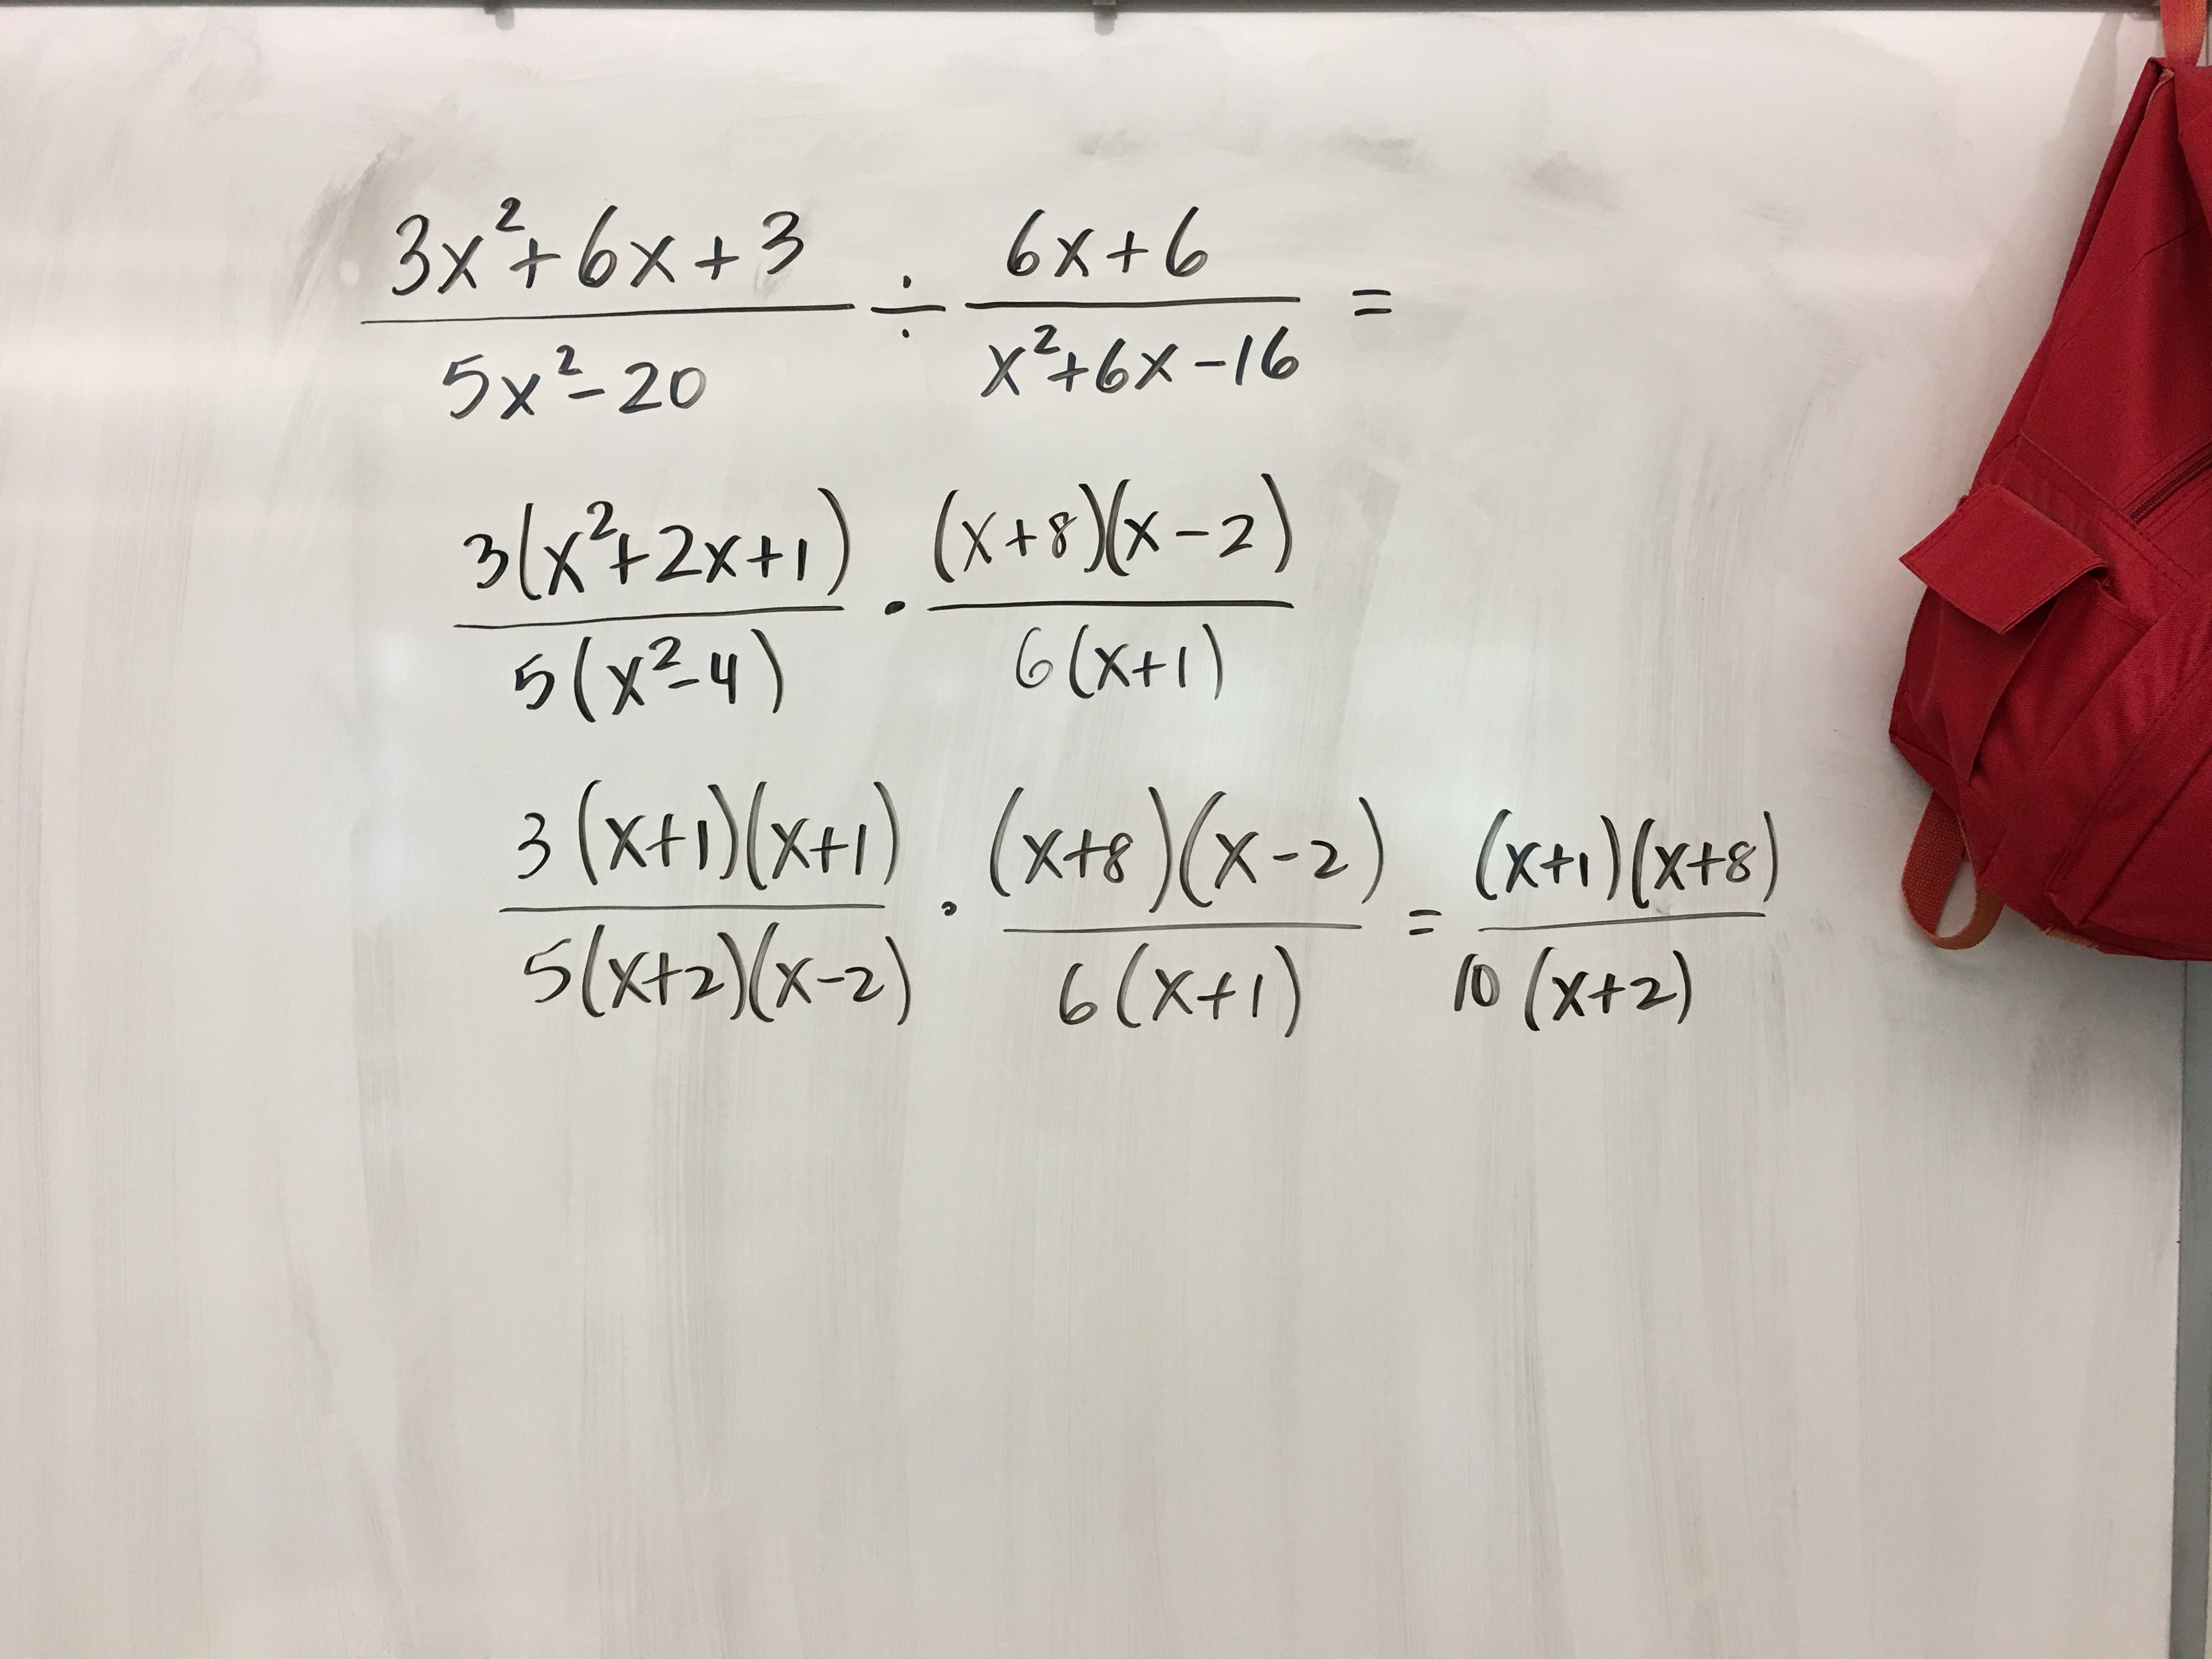 (3x²+6x+3)/(5x²-20) ÷ (6x+6)/(x²+6x-16) =
3(x²+2x+1)/5(x²-4) · (x+8)(x-2)/6(x+1)
3(x+1)(x+1)/5(x+2)(x-2) · (x+8)(x-2)/6(x+1) = (x+1)(x+8)/10(x+2)